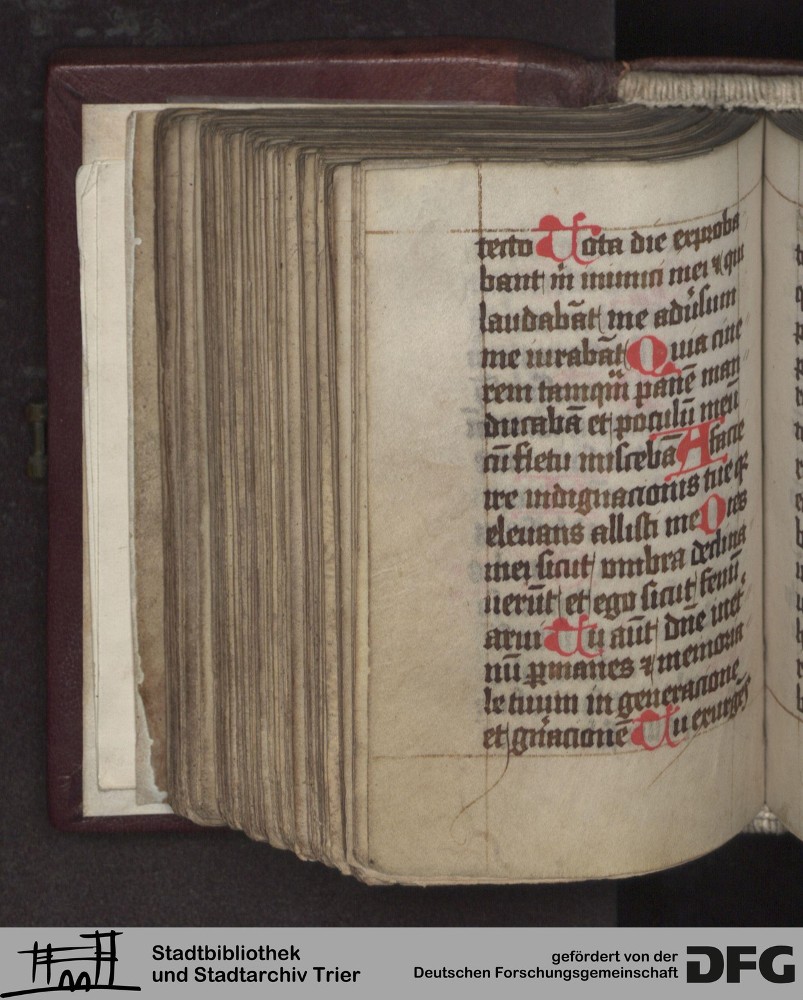 tecto Tota die exproba
bant in imini mei ⁊ qui
laudabāt me adūsum
me iurabāt Quia cine
rem tamqm̄ panē man
ducabā et poculū meū
cū fletu miscebā A facie
ire indignacionis tue q̄
eleuans allisti me Dies
mei sicut vmbra declina
uerūt et ego sicut fenū
arui Tu aūt dn̄e inet̄
nū ꝑmanes ⁊ memoria
le tuum in generacione
et gn̄acionē Tu exurgēs
Stadtbibliothek
und Stadtarchiv Trier
gefördert von der
Deutschen Forschungsgemeinschaft
DFG